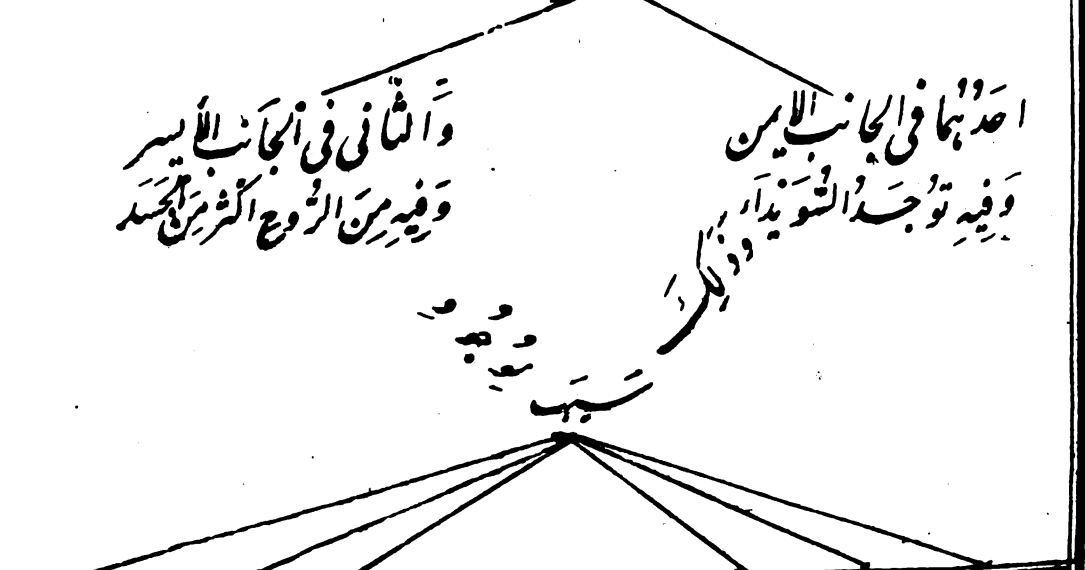 اَحَدُهُمَا فِى الجَانِبِ الاَيمن
وَفِيهِ تُوجَدُ السُّوَيْدَاءُ
وَالثَّانِى فِى الجَانِبِ الأَيسر
وَفِيهِ مِنَ الرُّوحِ اكْثَر مِنَ
وَذٰلِكَ